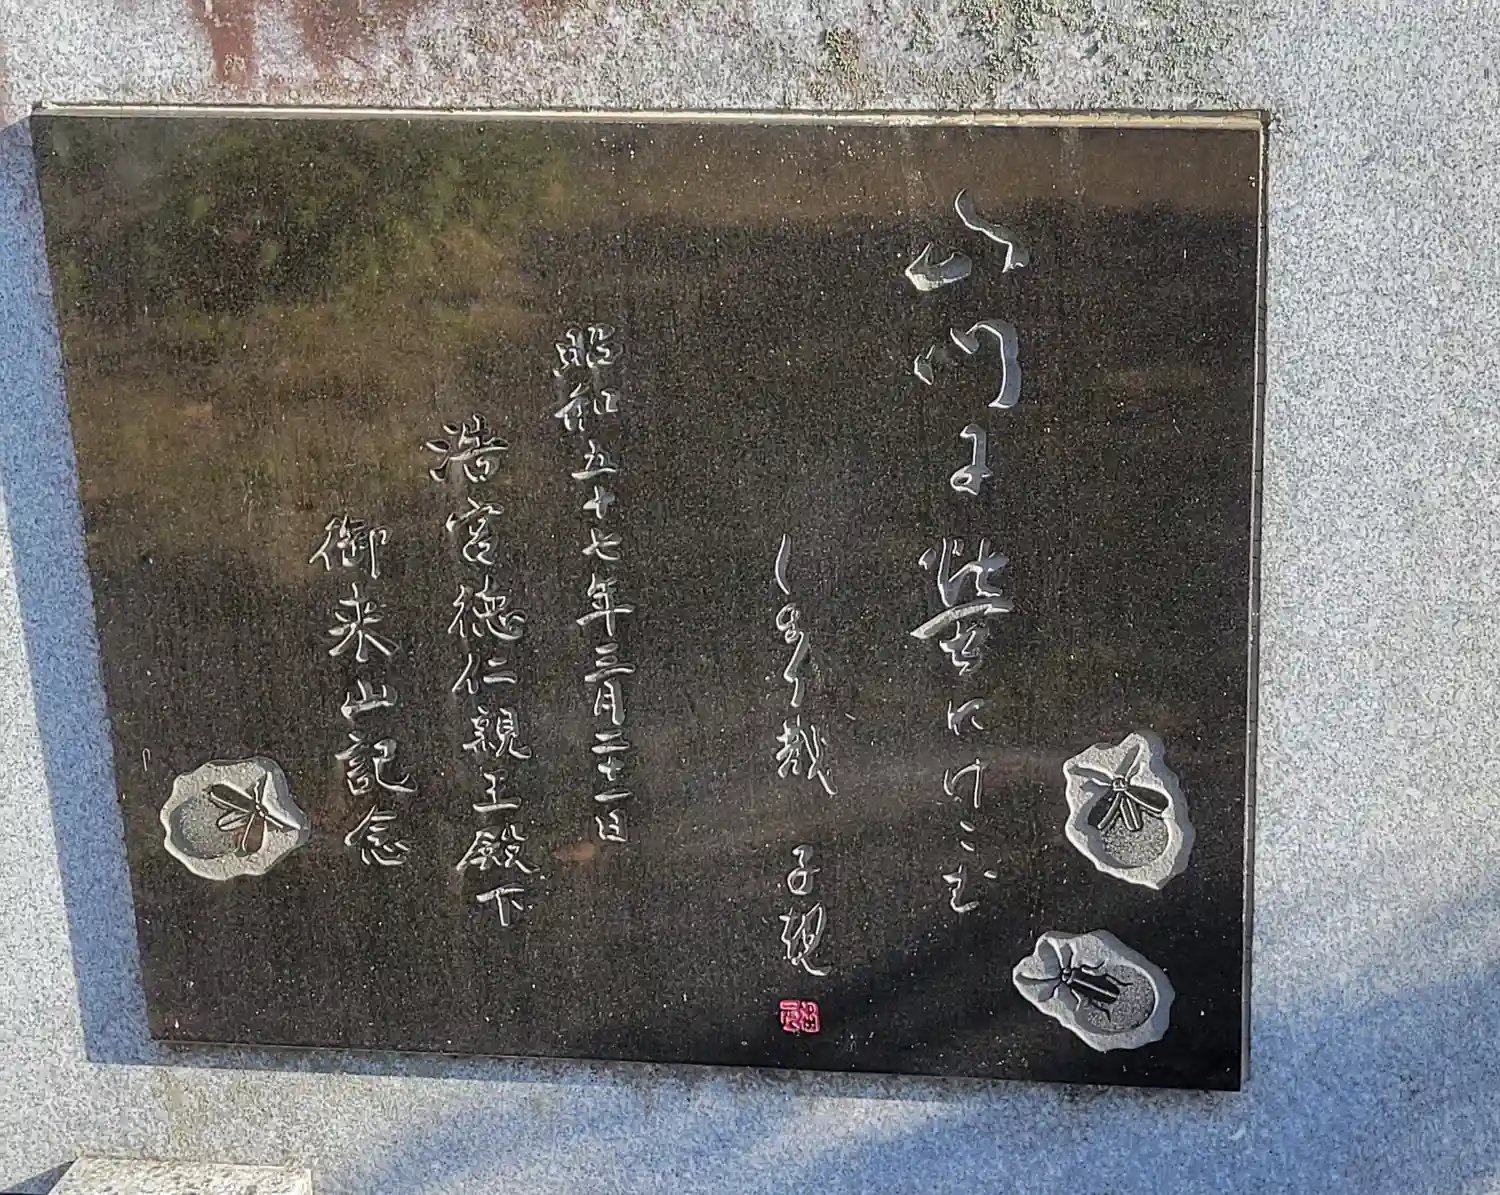 山門に螢にけこむ
しまり哉 子規
昭和五十七年三月二十一日
浩宮徳仁親王殿下
御来山記念